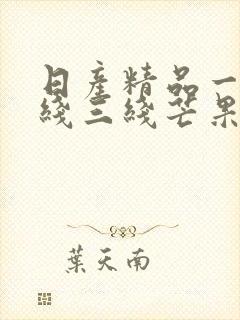 日産精品一
綫三綫芒果
葉天南